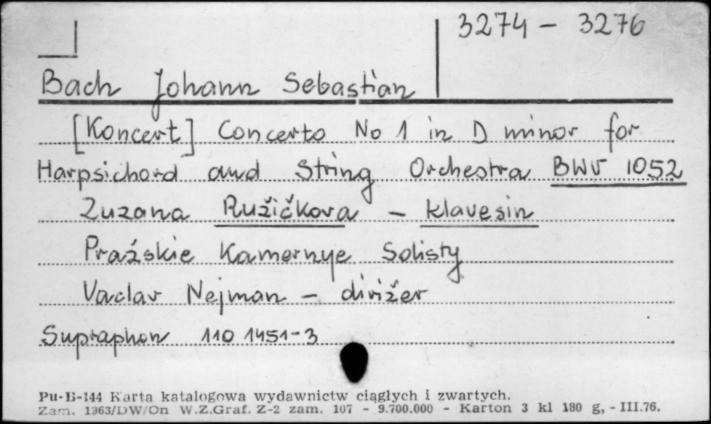 3274 - 3276
Bach Johann Sebastian
[Koncert] Concerto No 1 in D minor for
Harpsichord and String Orchestra BWV 1052
Zuzana Ružičkova - klavesin
Pražskie Kamernye Solisty
Vaclav Nejman - dirižer
Supraphon 110 1451-3
Pu-B-144 Karta katalogowa wydawnictw ciągłych i zwartych.
Zam. 1363/DW/On W.Z.Graf. Z-2 zam. 107 - 9.700.000 - Karton 3 kl 180 g, - III.76.